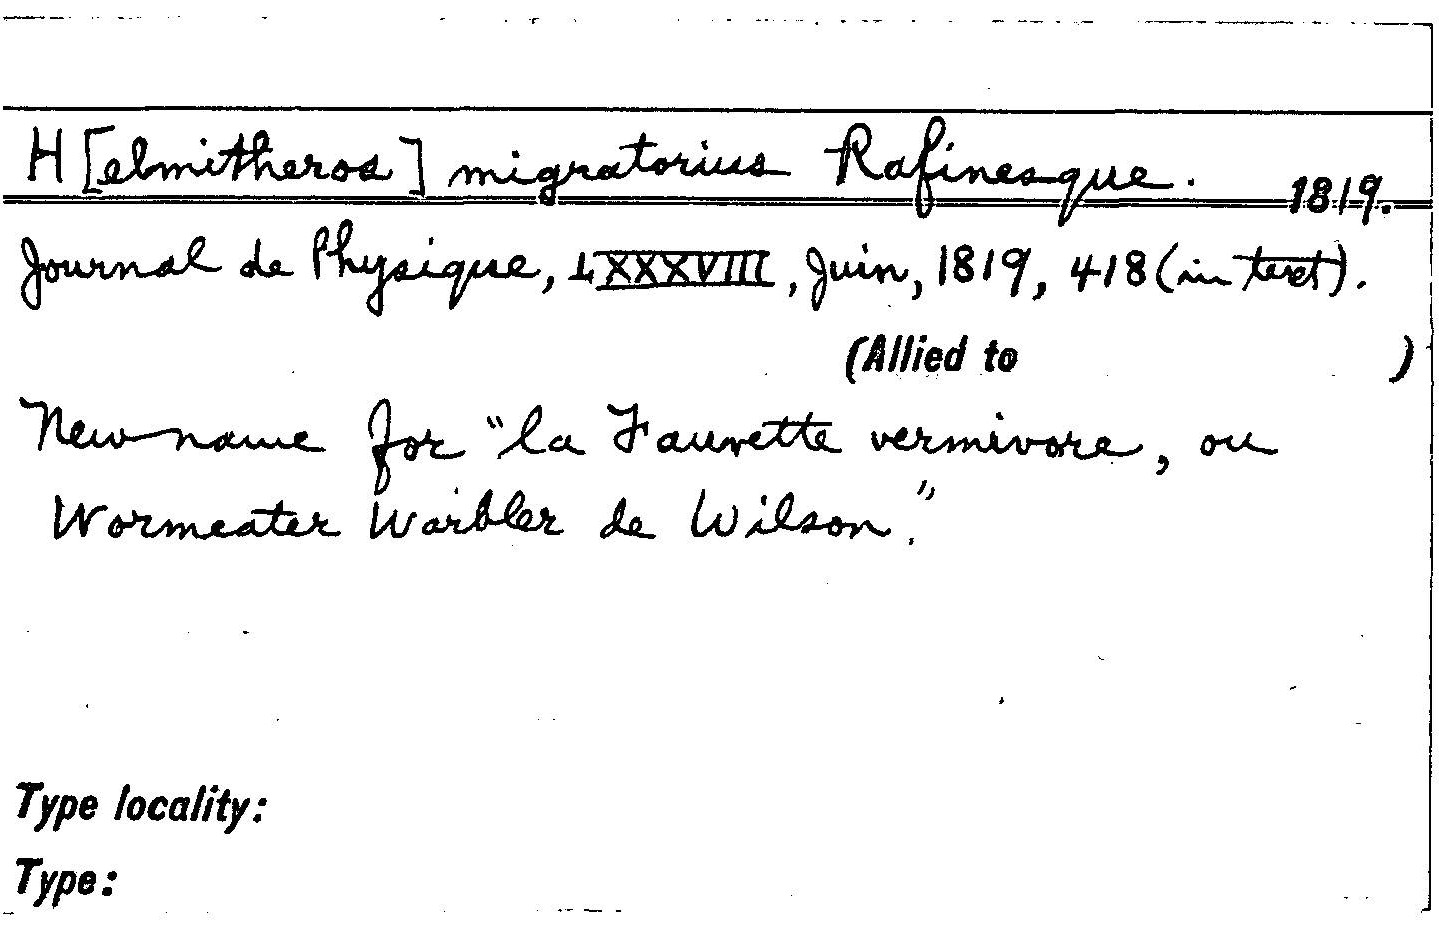 H[elmitheros] migratorius Rafinesque. 1819.
Journal de Physique, LXXXVIII, Juin, 1819, 418 (in text).
(Allied to )
New name for "la Fauvette vermivore, ou
Wormeater Warbler de Wilson."
Type locality:
Type: